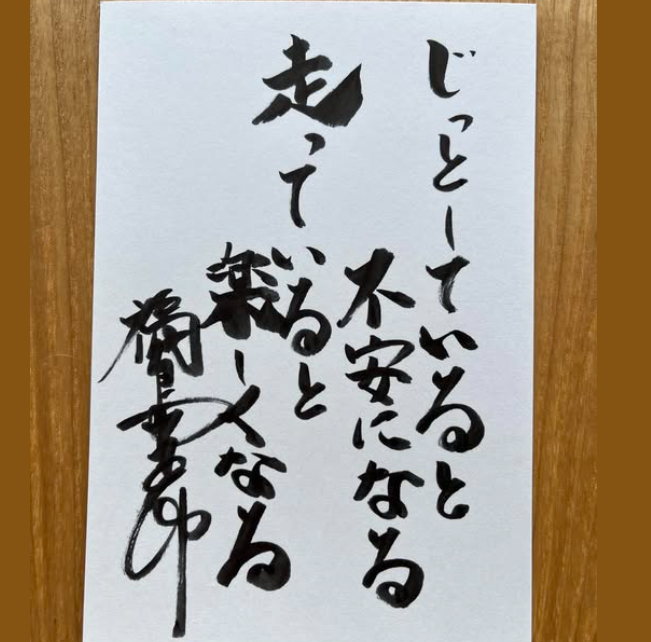 じっとしていると
不安になる
走って
いると
楽しくなる